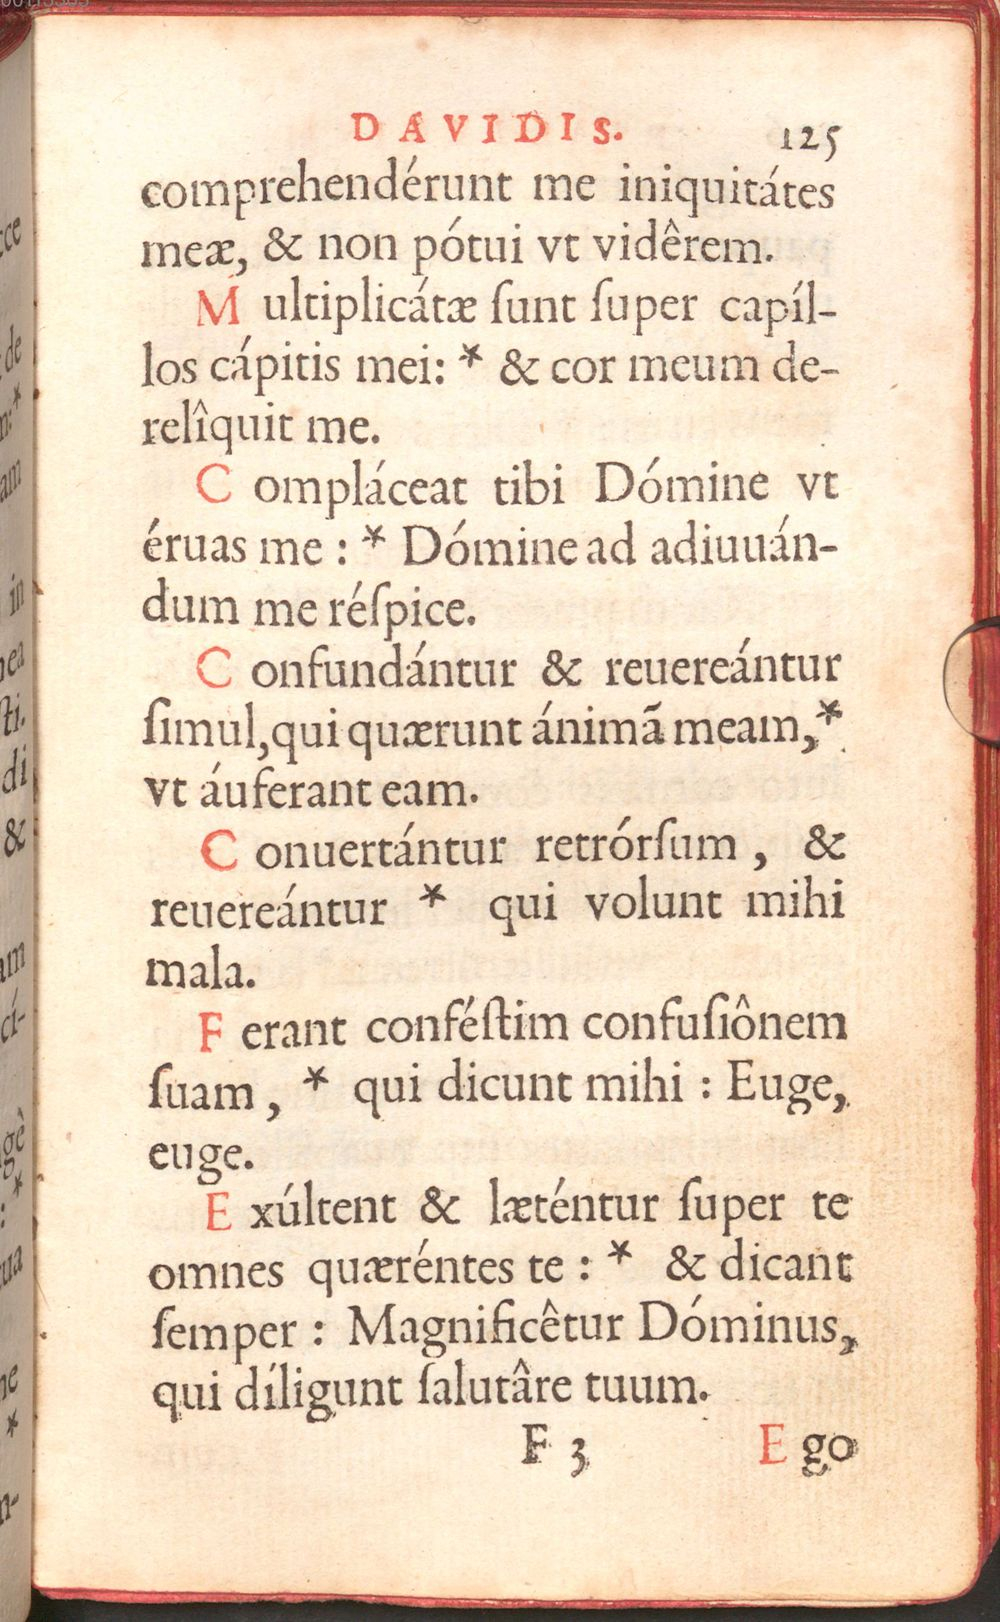 DAVIDIS. 125
comprehendérunt me iniquitátes
meæ, & non pótui vt vidêrem.
M ultiplicátæ ſunt ſuper capíl-
los cápitis mei: * & cor meum de-
relîquit me.
C ompláceat tibi Dómine vt
éruas me : * Dómine ad adiuuán-
dum me réſpice.
C onfundántur & reuereántur
ſimul, qui quærunt ánimã meam, *
vt áuferant eam.
C onuertántur retrórſum , &
reuereántur * qui volunt mihi
mala.
F erant conféſtim confuſiônem
ſuam , * qui dicunt mihi : Euge,
euge.
E xúltent & læténtur ſuper te
omnes quæréntes te : * & dicant
ſemper : Magnificêtur Dóminus,
qui díligunt ſalutâre tuum.
F 3 E go